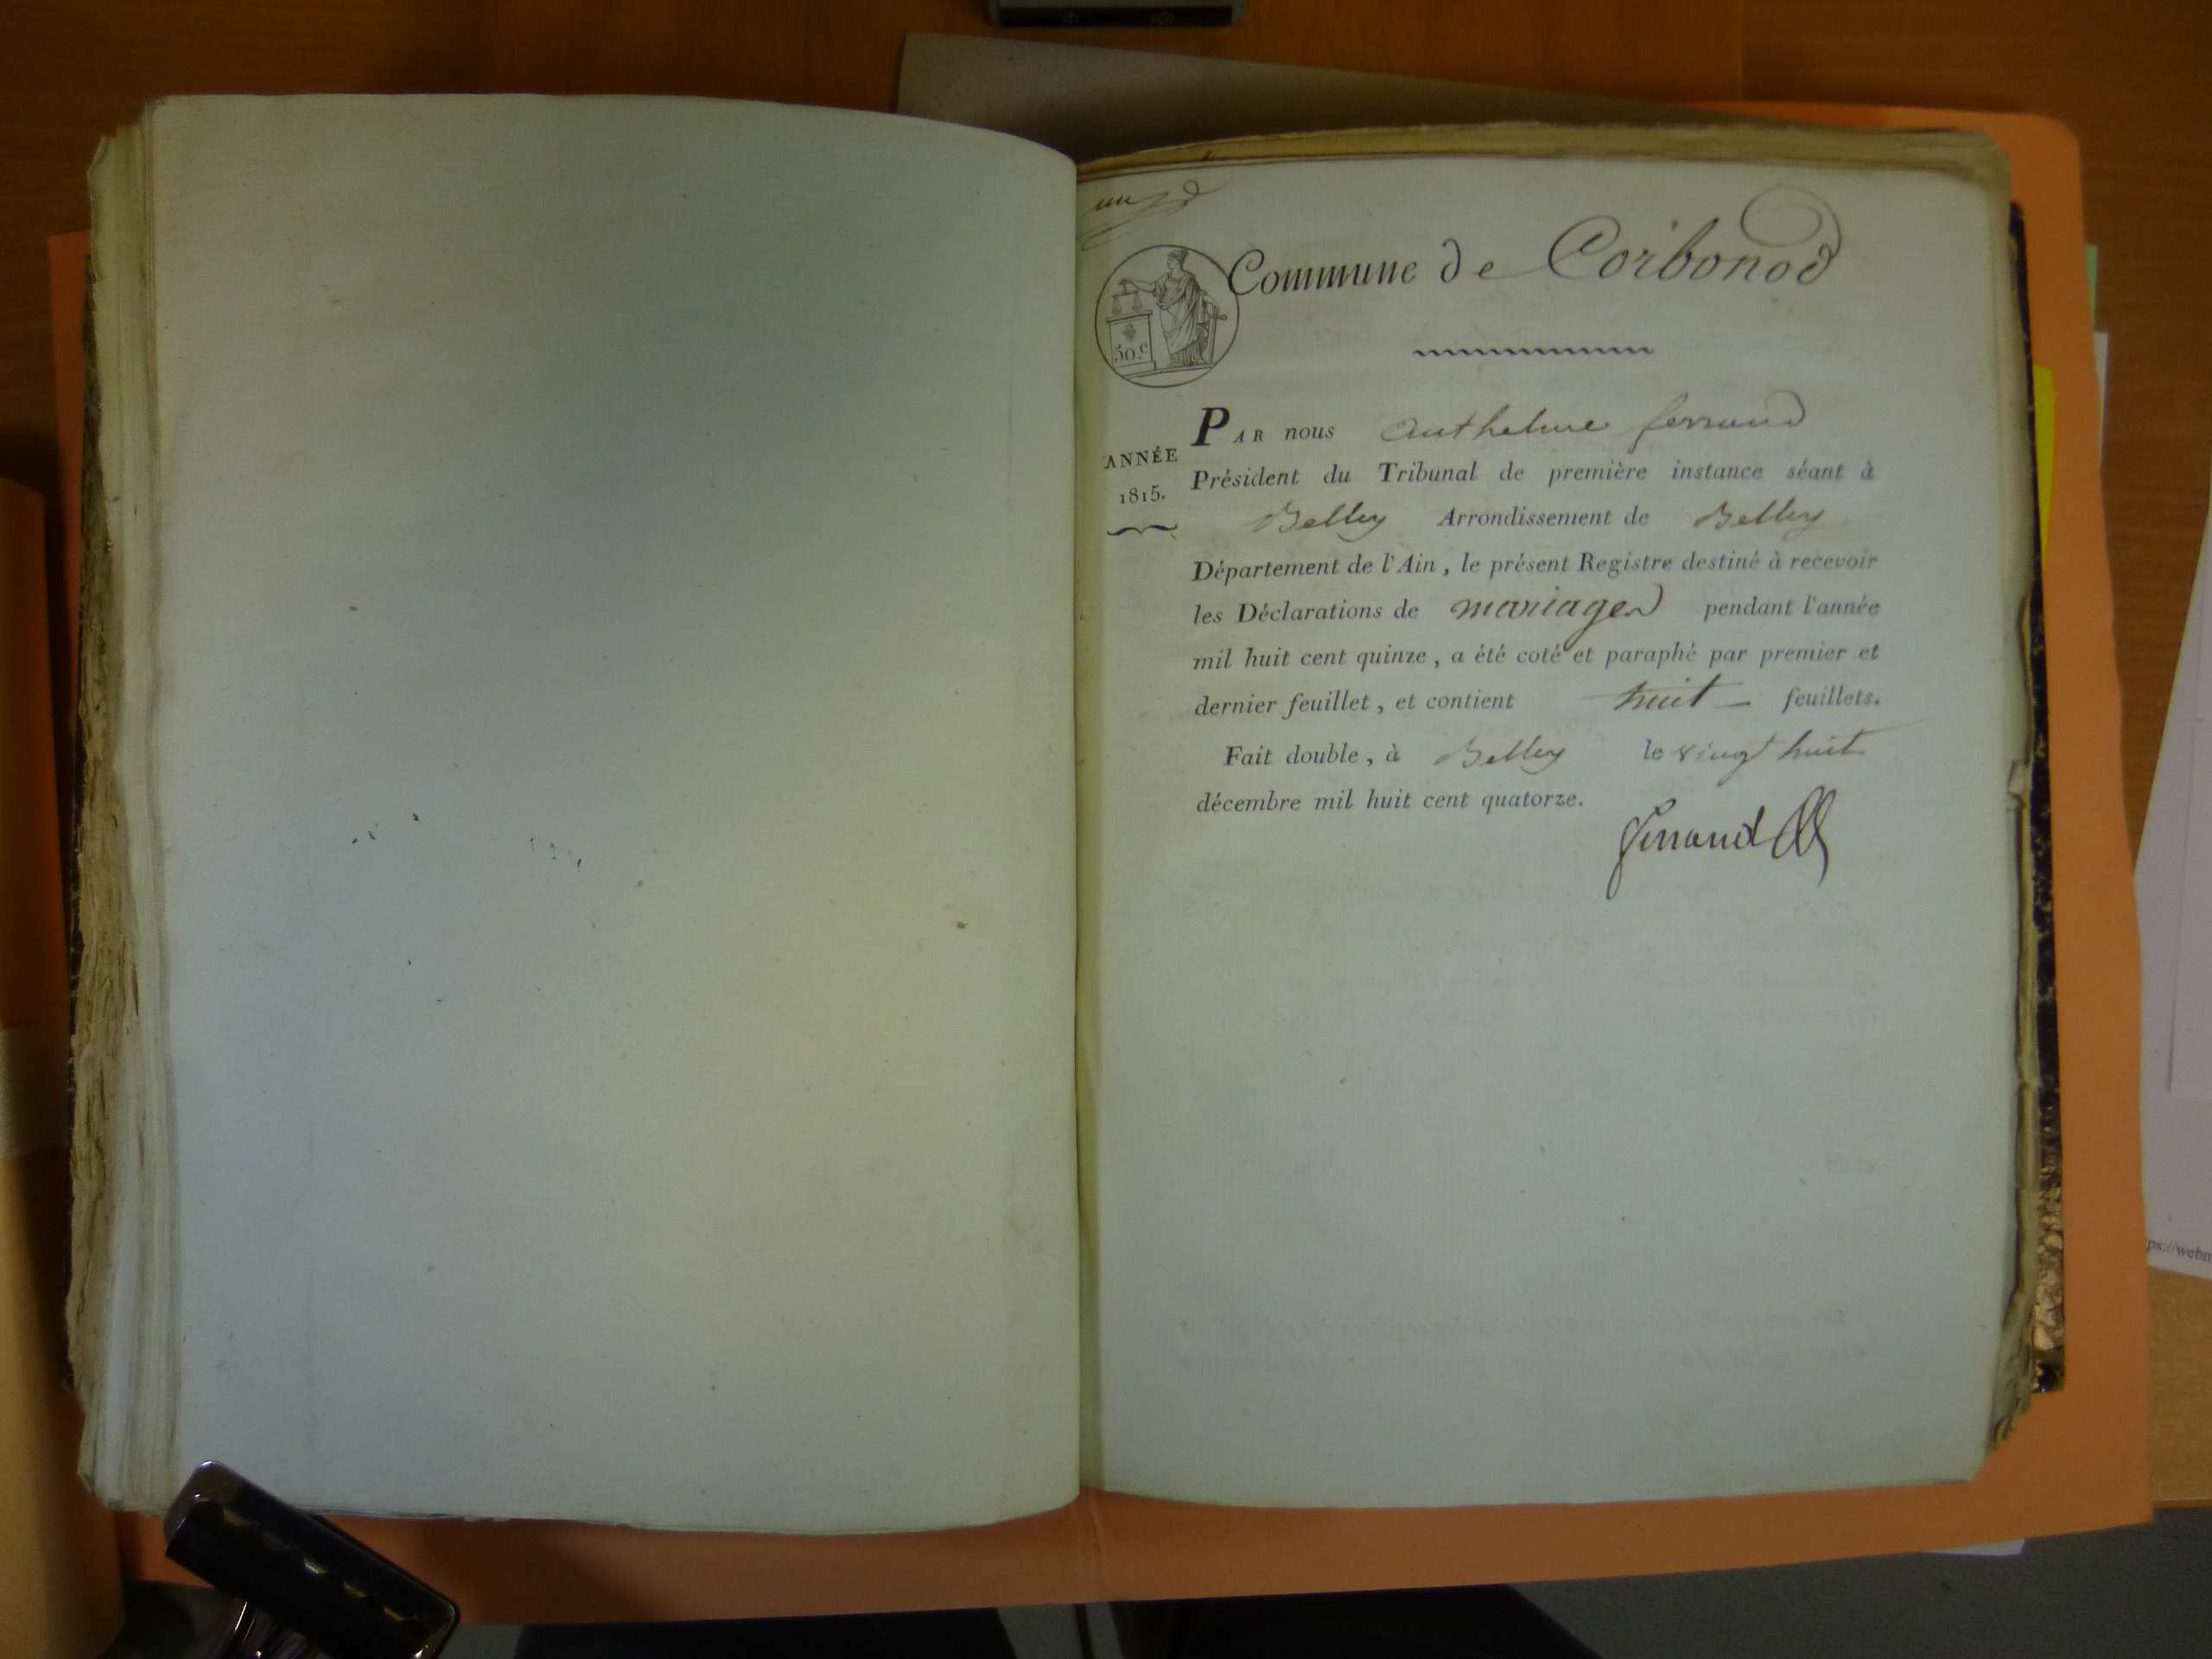 un
Commune de Corbonod
50.c
ANNÉE
1815.
PAR nous Anthelme ferrand
Président du Tribunal de première instance séant à
Belley Arrondissement de Belley
Département de l'Ain, le présent Registre destiné à recevoir
les Déclarations de mariages pendant l'année
mil huit cent quinze, a été coté et paraphé par premier et
dernier feuillet, et contient huit feuillets.
Fait double, à Belley le vingt huit
décembre mil huit cent quatorze.
Ferrand